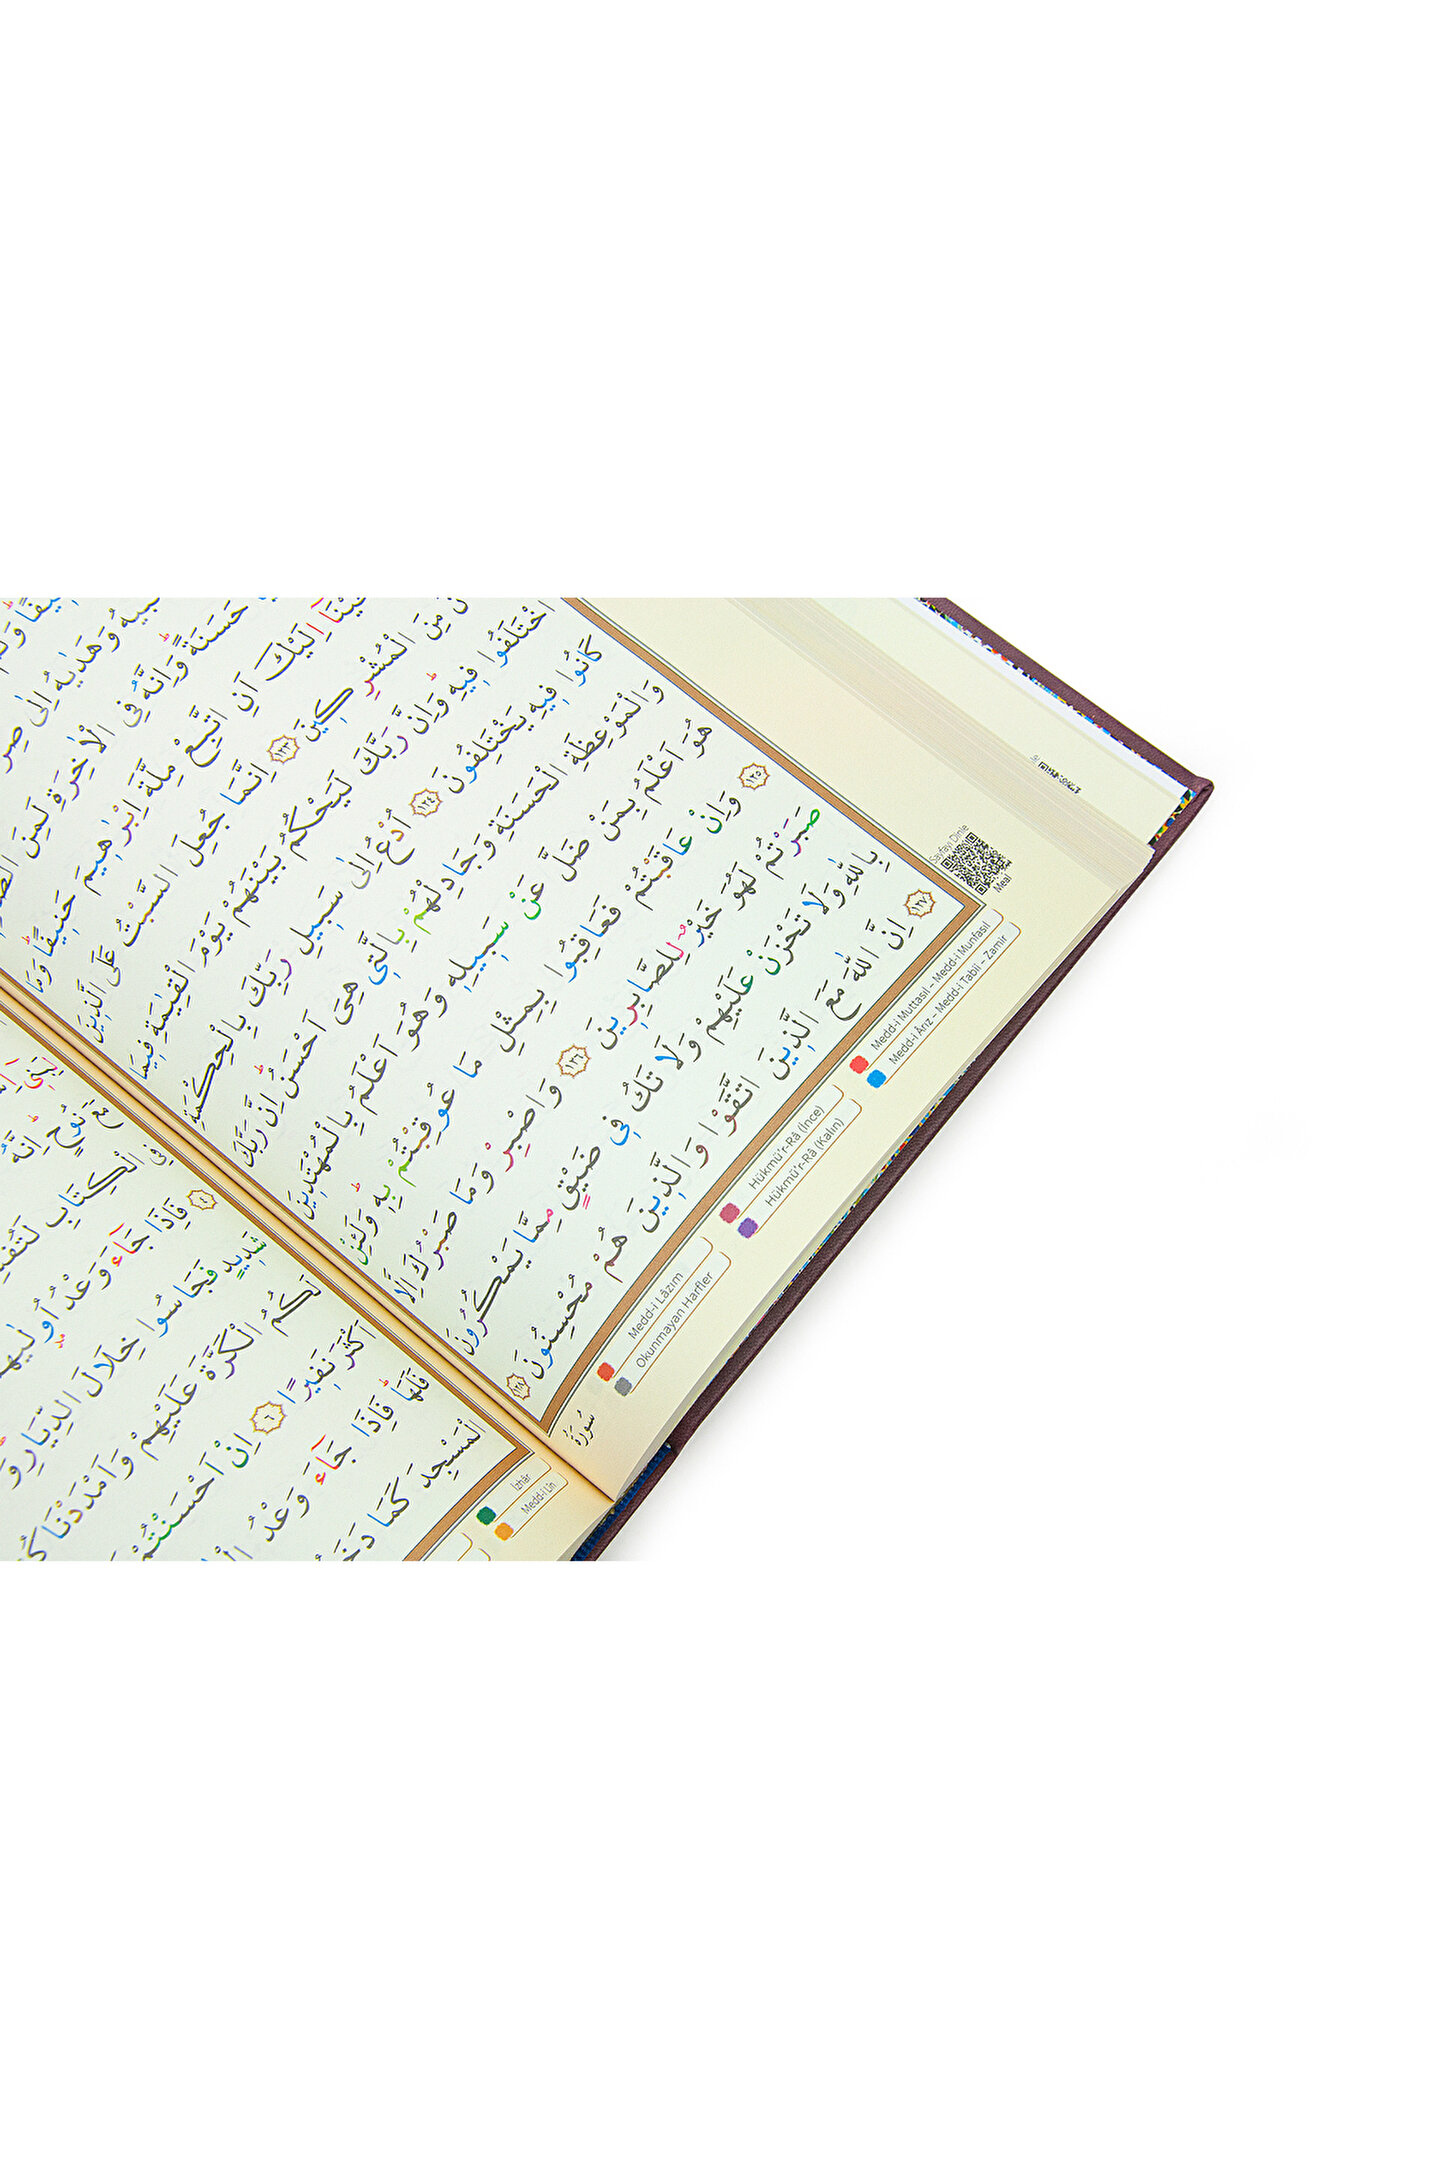 حَسَنَةً وَاِنَّهُ فِى الْاٰخِرَةِ لَمِنَ
اِلَيْكَ اَنِ اتَّبِعْ مِلَّةَ اِبْرٰهِيمَ حَنِيفًا وَمَا
مِنَ الْمُشْرِكِينَ ﴿١٢٣﴾ اِنَّمَا جُعِلَ السَّبْتُ عَلَى الَّذِينَ
اخْتَلَفُوا فِيهِ وَاِنَّ رَبَّكَ لَيَحْكُمُ بَيْنَهُمْ يَوْمَ الْقِيٰمَةِ فِيمَا
كَانُوا فِيهِ يَخْتَلِفُونَ ﴿١٢٤﴾ اُدْعُ اِلٰى سَبِيلِ رَبِّكَ بِالْحِكْمَةِ
وَالْمَوْعِظَةِ الْحَسَنَةِ وَجَادِلْهُمْ بِالَّتِى هِىَ اَحْسَنُ اِنَّ رَبَّكَ
هُوَ اَعْلَمُ بِمَنْ ضَلَّ عَنْ سَبِيلِهِ وَهُوَ اَعْلَمُ بِالْمُهْتَدِينَ
﴿١٢٥﴾ وَاِنْ عَاقَبْتُمْ فَعَاقِبُوا بِمِثْلِ مَا عُوقِبْتُمْ بِهِ وَلَئِنْ
صَبَرْتُمْ لَهُوَ خَيْرٌ لِلصَّابِرِينَ ﴿١٢٦﴾ وَاصْبِرْ وَمَا صَبْرُكَ اِلَّا
بِاللّٰهِ وَلَا تَحْزَنْ عَلَيْهِمْ وَلَا تَكُ فِى ضَيْقٍ مِمَّا يَمْكُرُونَ
﴿١٢٧﴾ اِنَّ اللّٰهَ مَعَ الَّذِينَ اتَّقَوْا وَالَّذِينَ هُمْ مُحْسِنُونَ ﴿١٢٨﴾
سُورَةُ
Sayfayı Dinle
Meal
Medd-i Muttasıl – Medd-i Munfasıl
Medd-i Ârız – Medd-i Tabîi – Zamir
Hükmü'r-Râ (İnce)
Hükmü'r-Râ (Kalın)
Medd-i Lâzım
Okunmayan Harfler
مَعَ نُوحٍ اِنَّهُ
فِى الْكِتَابِ
﴿٤﴾ فَاِذَا جَاءَ وَعْدُ
شَدِيدٍ فَجَاسُوا خِلَالَ الدِّيَارِ
لَكُمُ الْكَرَّةَ عَلَيْهِمْ وَاَمْدَدْنَا
اَكْثَرَ نَفِيرًا ﴿٦﴾ اِنْ اَحْسَنْتُمْ
فَلَهَا فَاِذَا جَاءَ وَعْدُ
الْمَسْجِدَ كَمَا
İzhâr
Medd-i Lîn